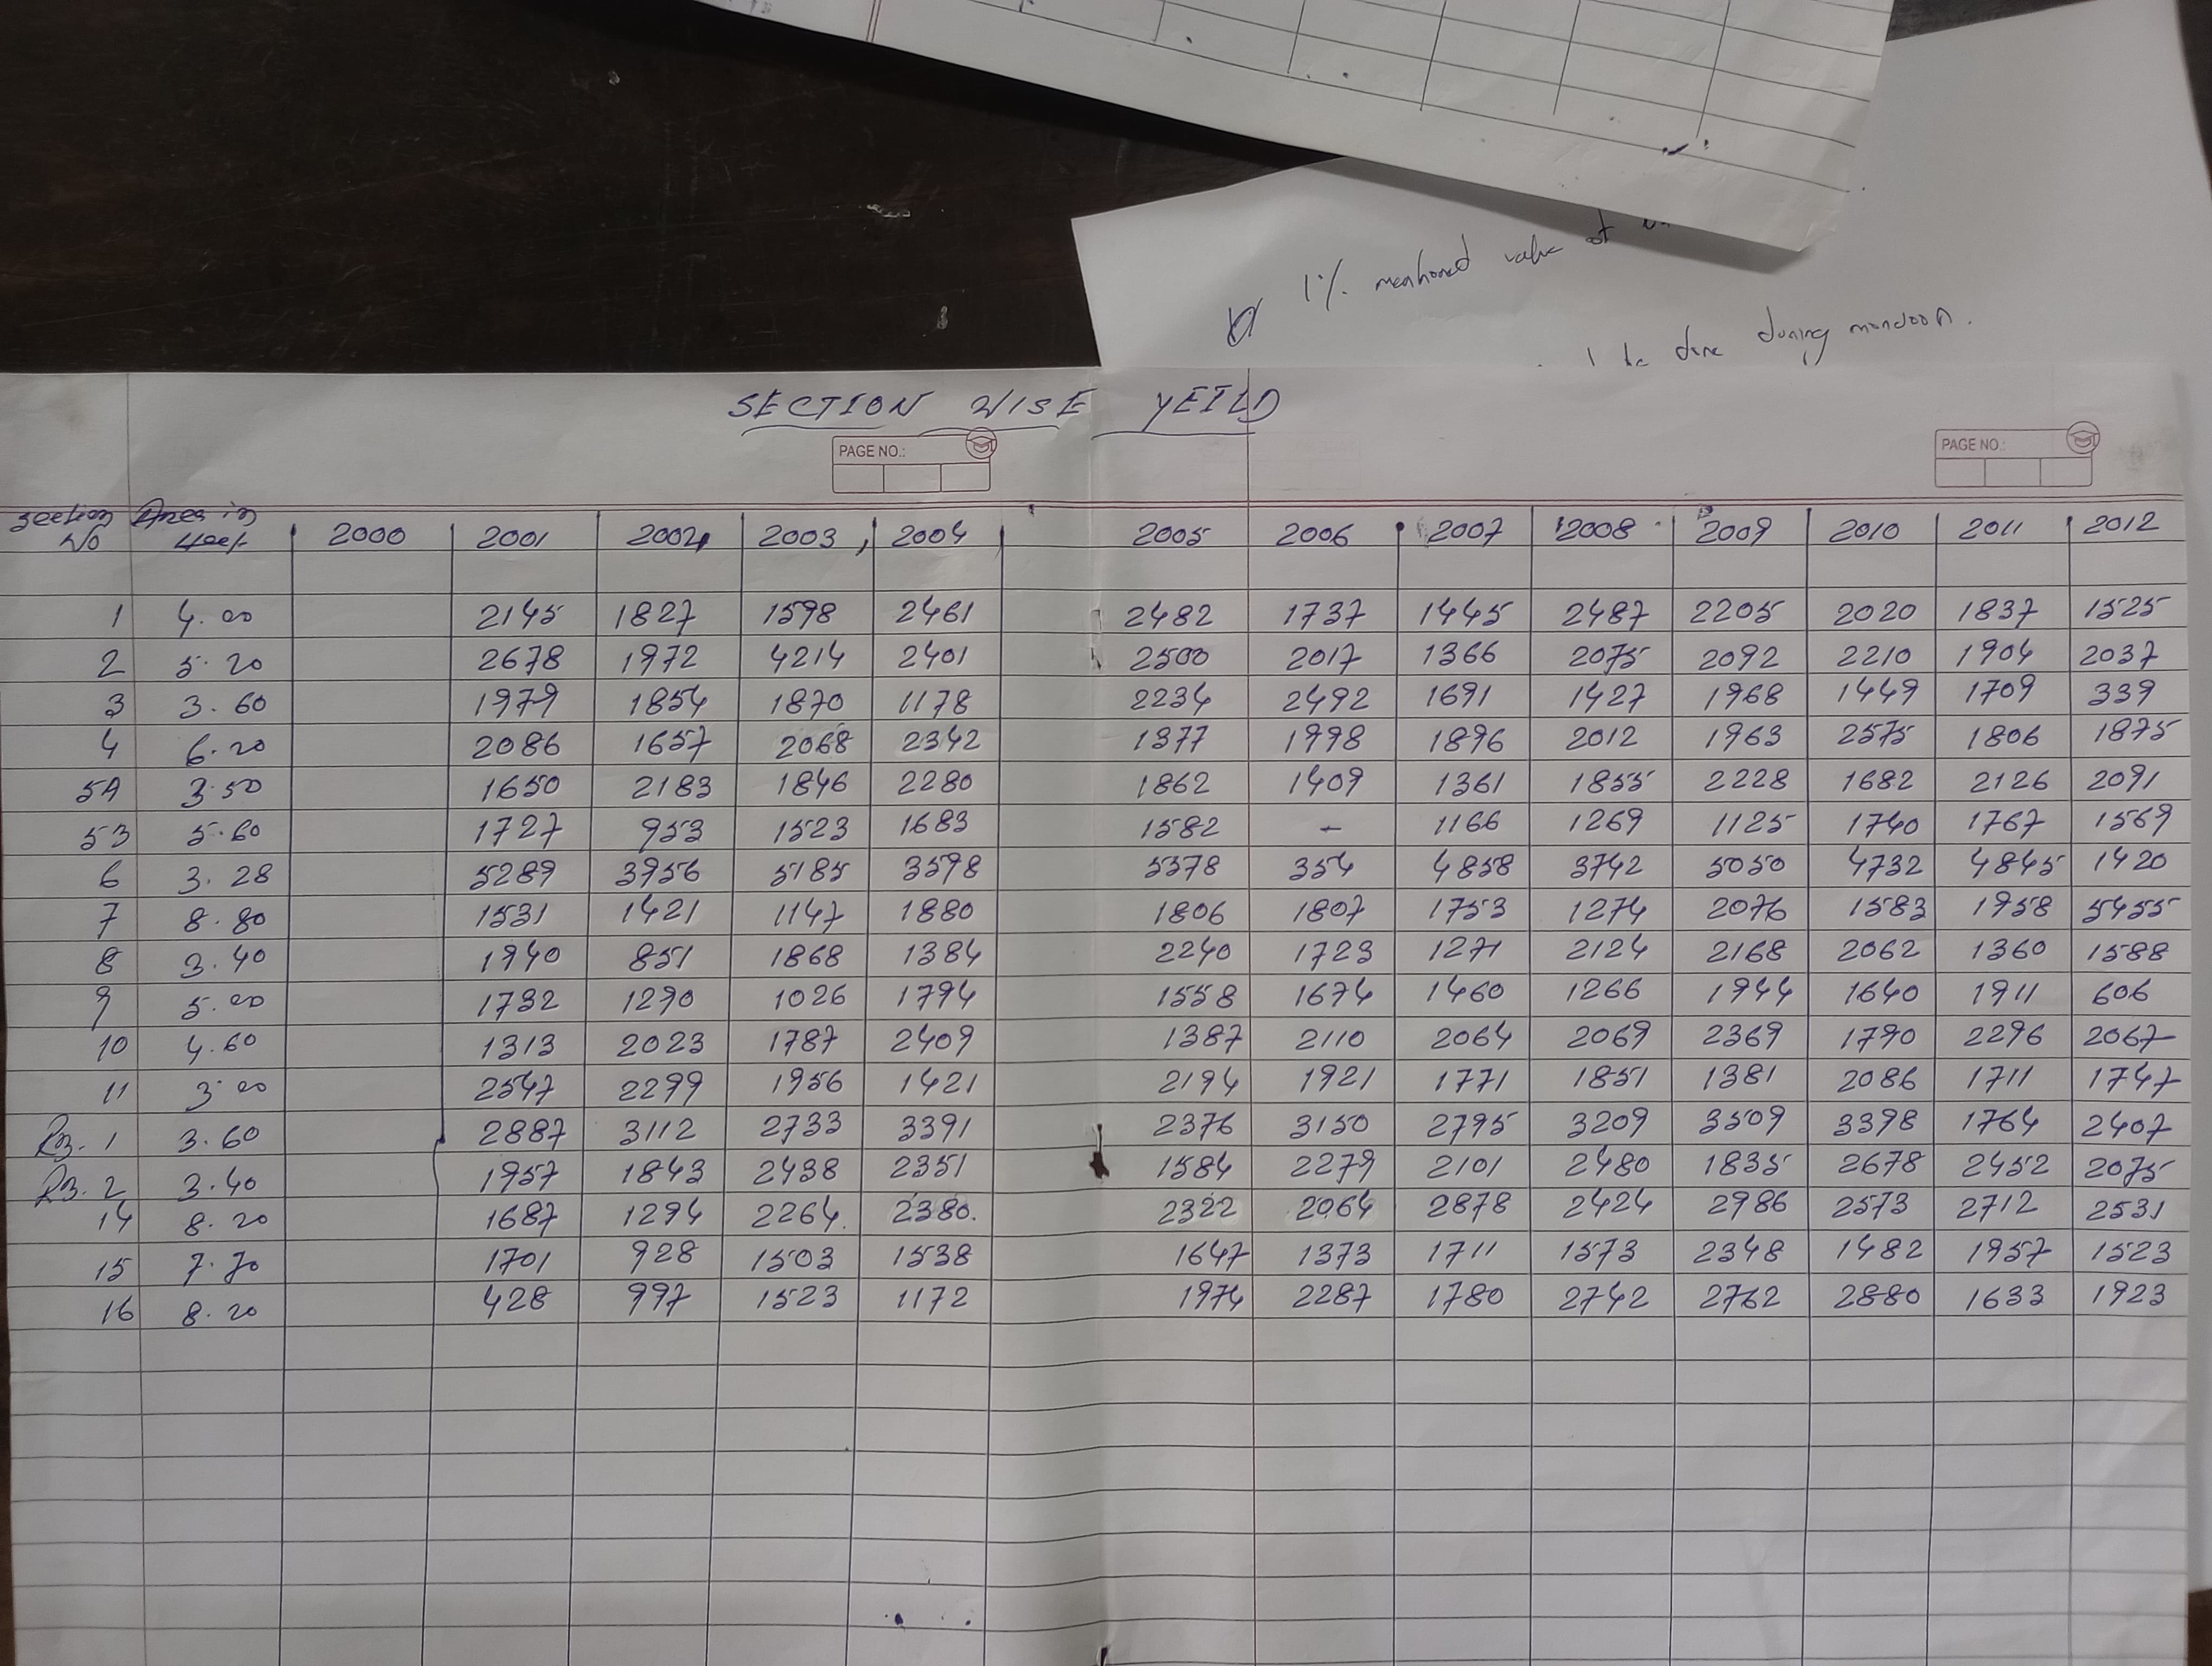 1% mentioned value of
be done during monsoon.
SECTION WISE YEILD
PAGE NO.: PAGE NO.:
Section No Area in Hect. 2000 2001 2002 2003 2004 2005 2006 2007 2008 2009 2010 2011 2012
1 4.00 2145 1827 1598 2461 2482 1737 1445 2487 2205 2020 1837 1525
2 5.20 2678 1972 4214 2401 2500 2017 1366 2075 2092 2210 1904 2037
3 3.60 1979 1854 1870 1178 2234 2492 1691 1427 1968 1449 1709 339
4 6.20 2086 1657 2068 2342 1377 1998 1896 2012 1963 2575 1806 1875
5A 3.50 1650 2183 1846 2280 1862 1409 1361 1855 2228 1682 2126 2091
5B 5.60 1727 953 1523 1683 1582 - 1166 1269 1125 1740 1767 1569
6 3.28 5289 3956 5185 3598 5378 354 4858 3742 5050 4732 4845 1420
7 8.80 1531 1421 1147 1880 1806 1807 1753 1274 2076 1583 1958 5455
8 3.40 1940 851 1868 1384 2240 1723 1271 2124 2168 2062 1360 1588
9 5.00 1732 1290 1026 1794 1558 1674 1460 1266 1944 1640 1911 606
10 4.60 1313 2023 1787 2409 1387 2110 2064 2069 2369 1790 2296 2067
11 3.00 2547 2299 1956 1421 2194 1921 1771 1851 1381 2086 1711 1747
RB. 1 3.60 2887 3112 2733 3391 2376 3150 2795 3209 3509 3398 1764 2407
RB. 2 3.40 1957 1843 2438 2351 1584 2279 2101 2480 1835 2678 2452 2075
14 8.20 1687 1294 2264. 2380. 2322 2064 2878 2424 2986 2573 2712 2531
15 7.70 1701 928 1503 1538 1647 1373 1711 1573 2348 1482 1957 1523
16 8.20 428 997 1523 1172 1974 2287 1780 2742 2762 2880 1633 1923